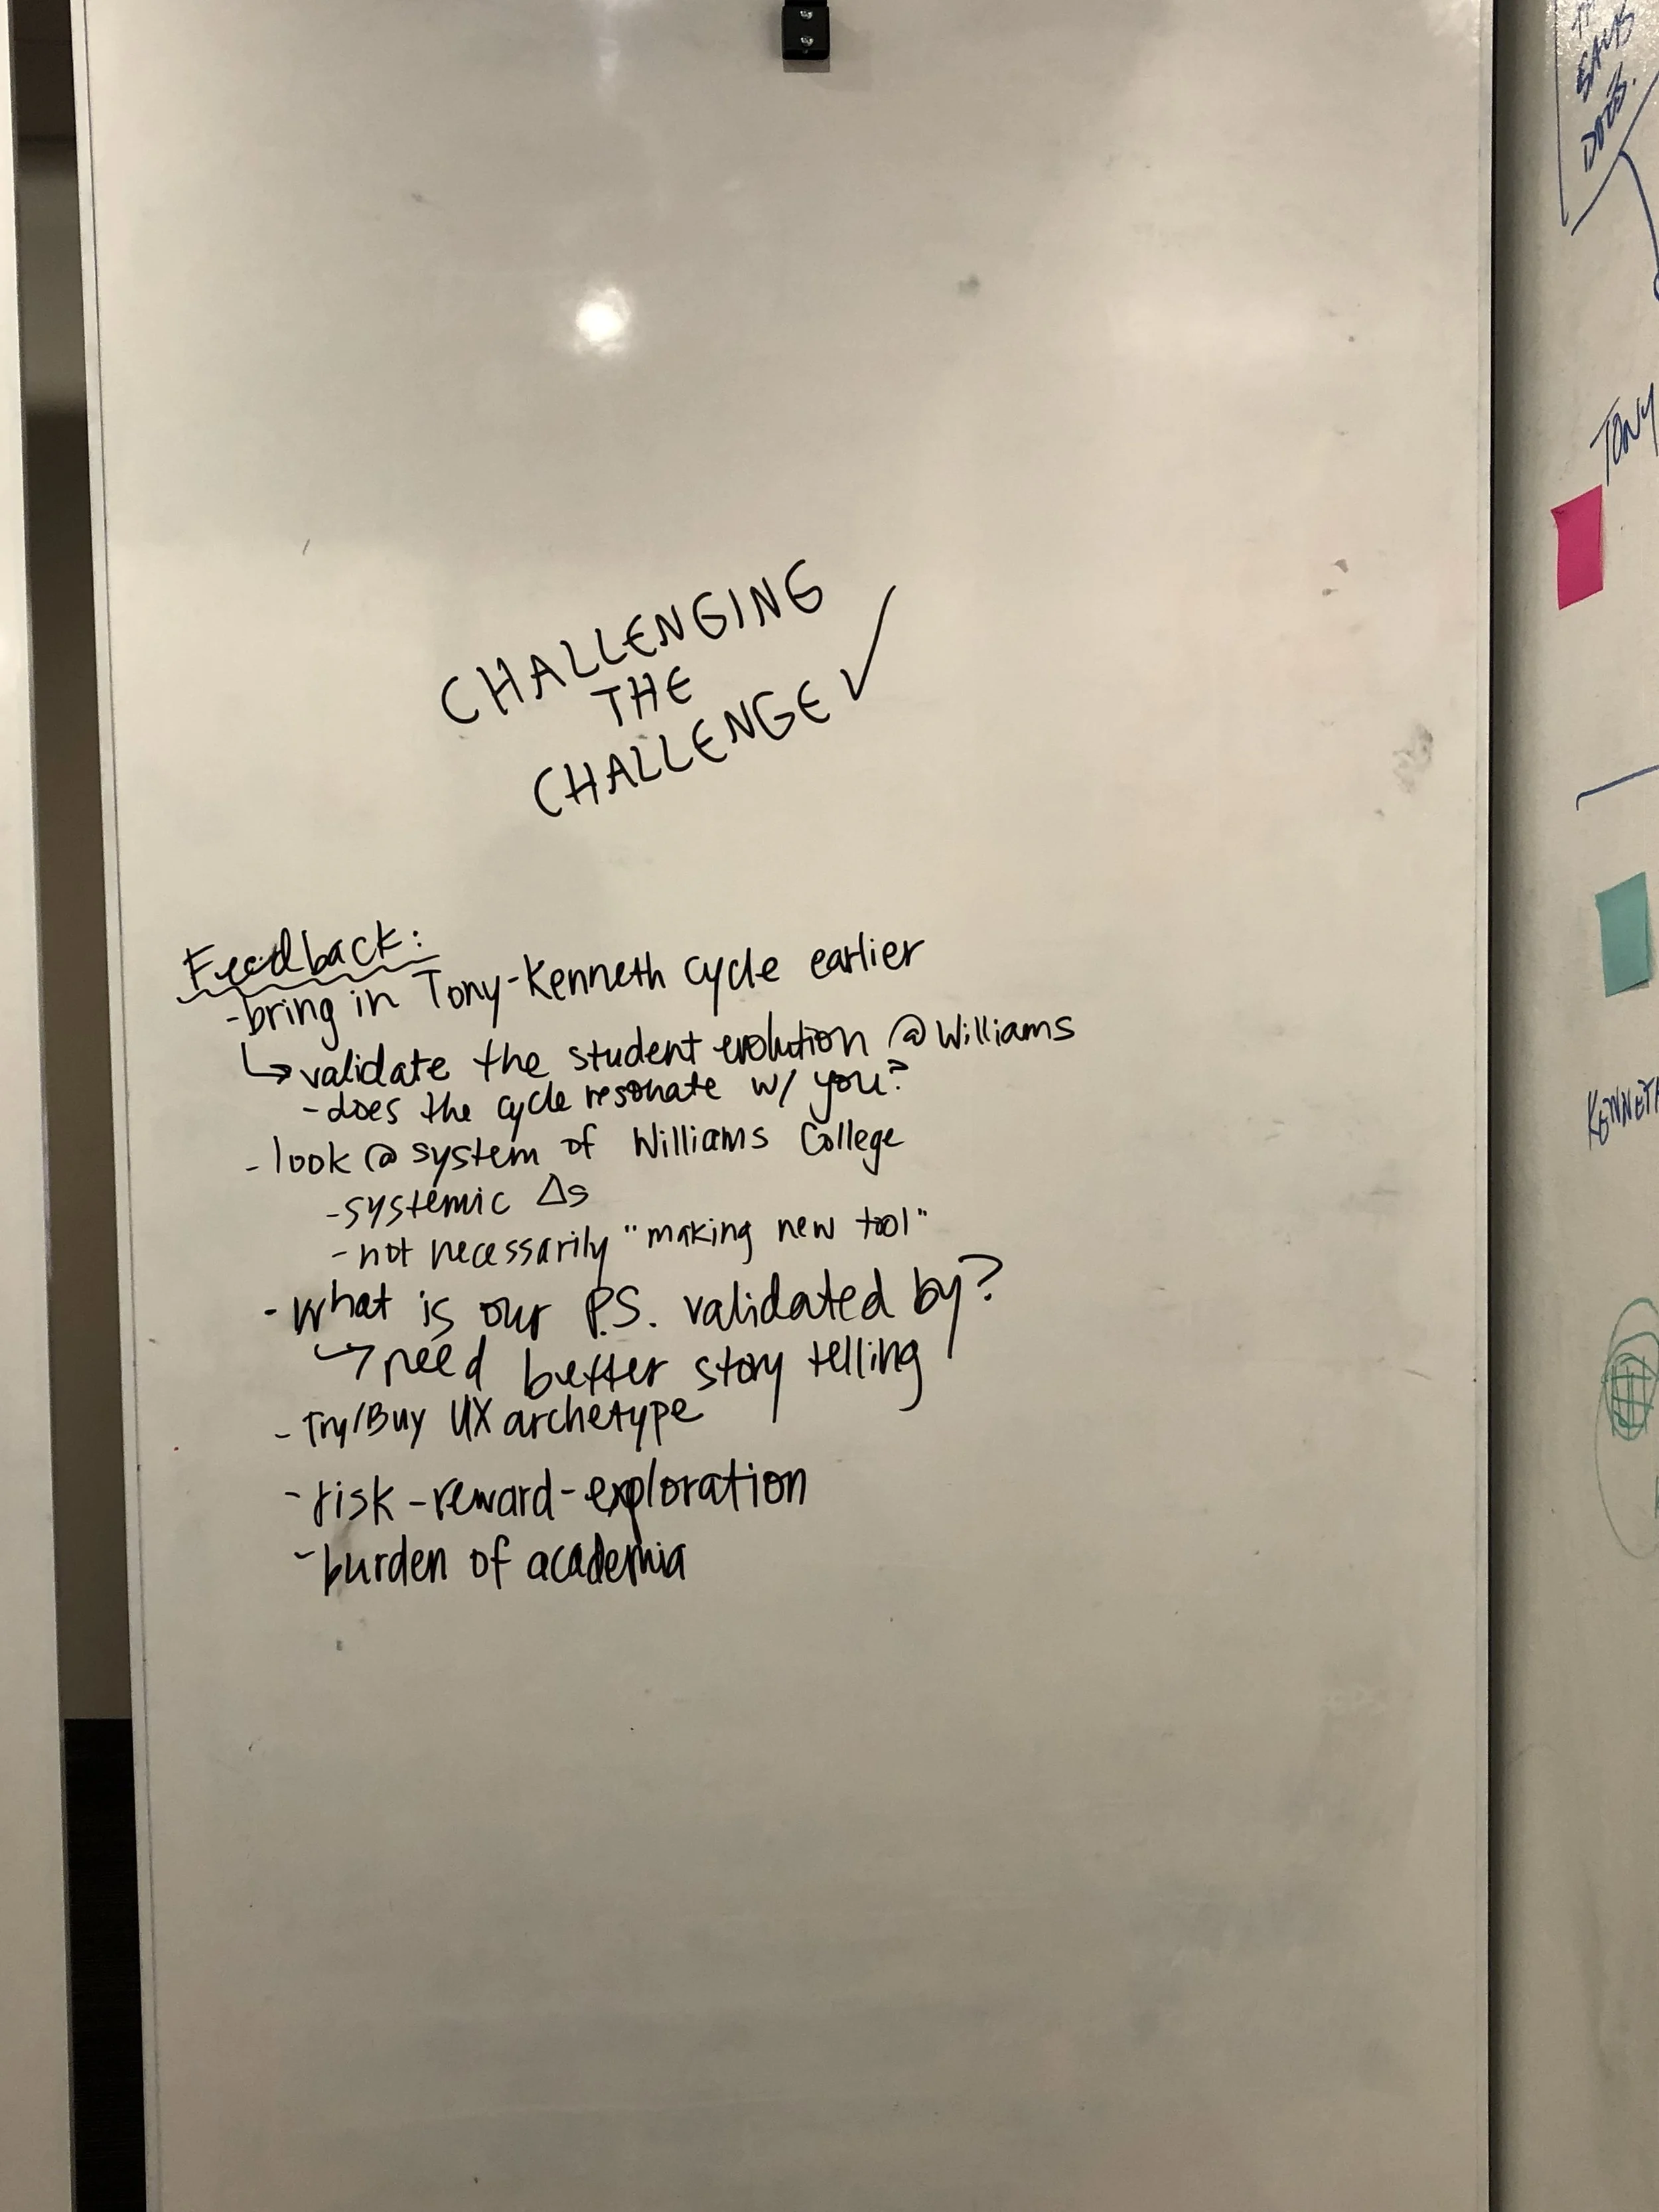 CHALLENGING
THE
CHALLENGE ✓
Feedback:
- bring in Tony-Kenneth cycle earlier
↳ validate the student evolution @ Williams
- does the cycle resonate w/ you?
- look @ system of Williams College
- systemic Δs
- not necessarily "making new tool"
- What is our P.S. validated by?
↳ need better story telling
- Try/Buy UX archetype
- risk-reward-exploration
- burden of academia
SAYS
DOES.
TONY
KENNETH